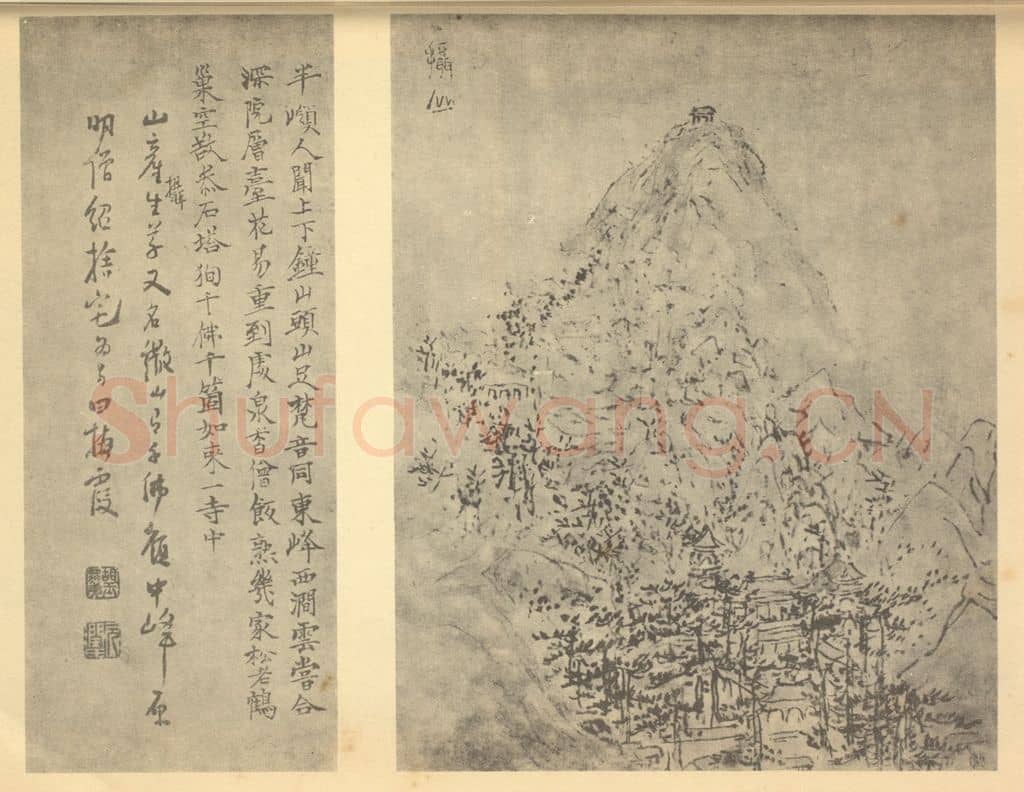 攝山
半嶺人聞上下鐘山頭山足梵音同東峰西澗雲嘗合
深院層臺花易重到處泉香僧飯熟幾家松老鶴
巢空欲參石塔狥千佛千箇如來一寺中
山產攝生草又名繖山有千佛嶺中峰原
明僧紹捨宅為寺曰棲霞
Shufawang.CN